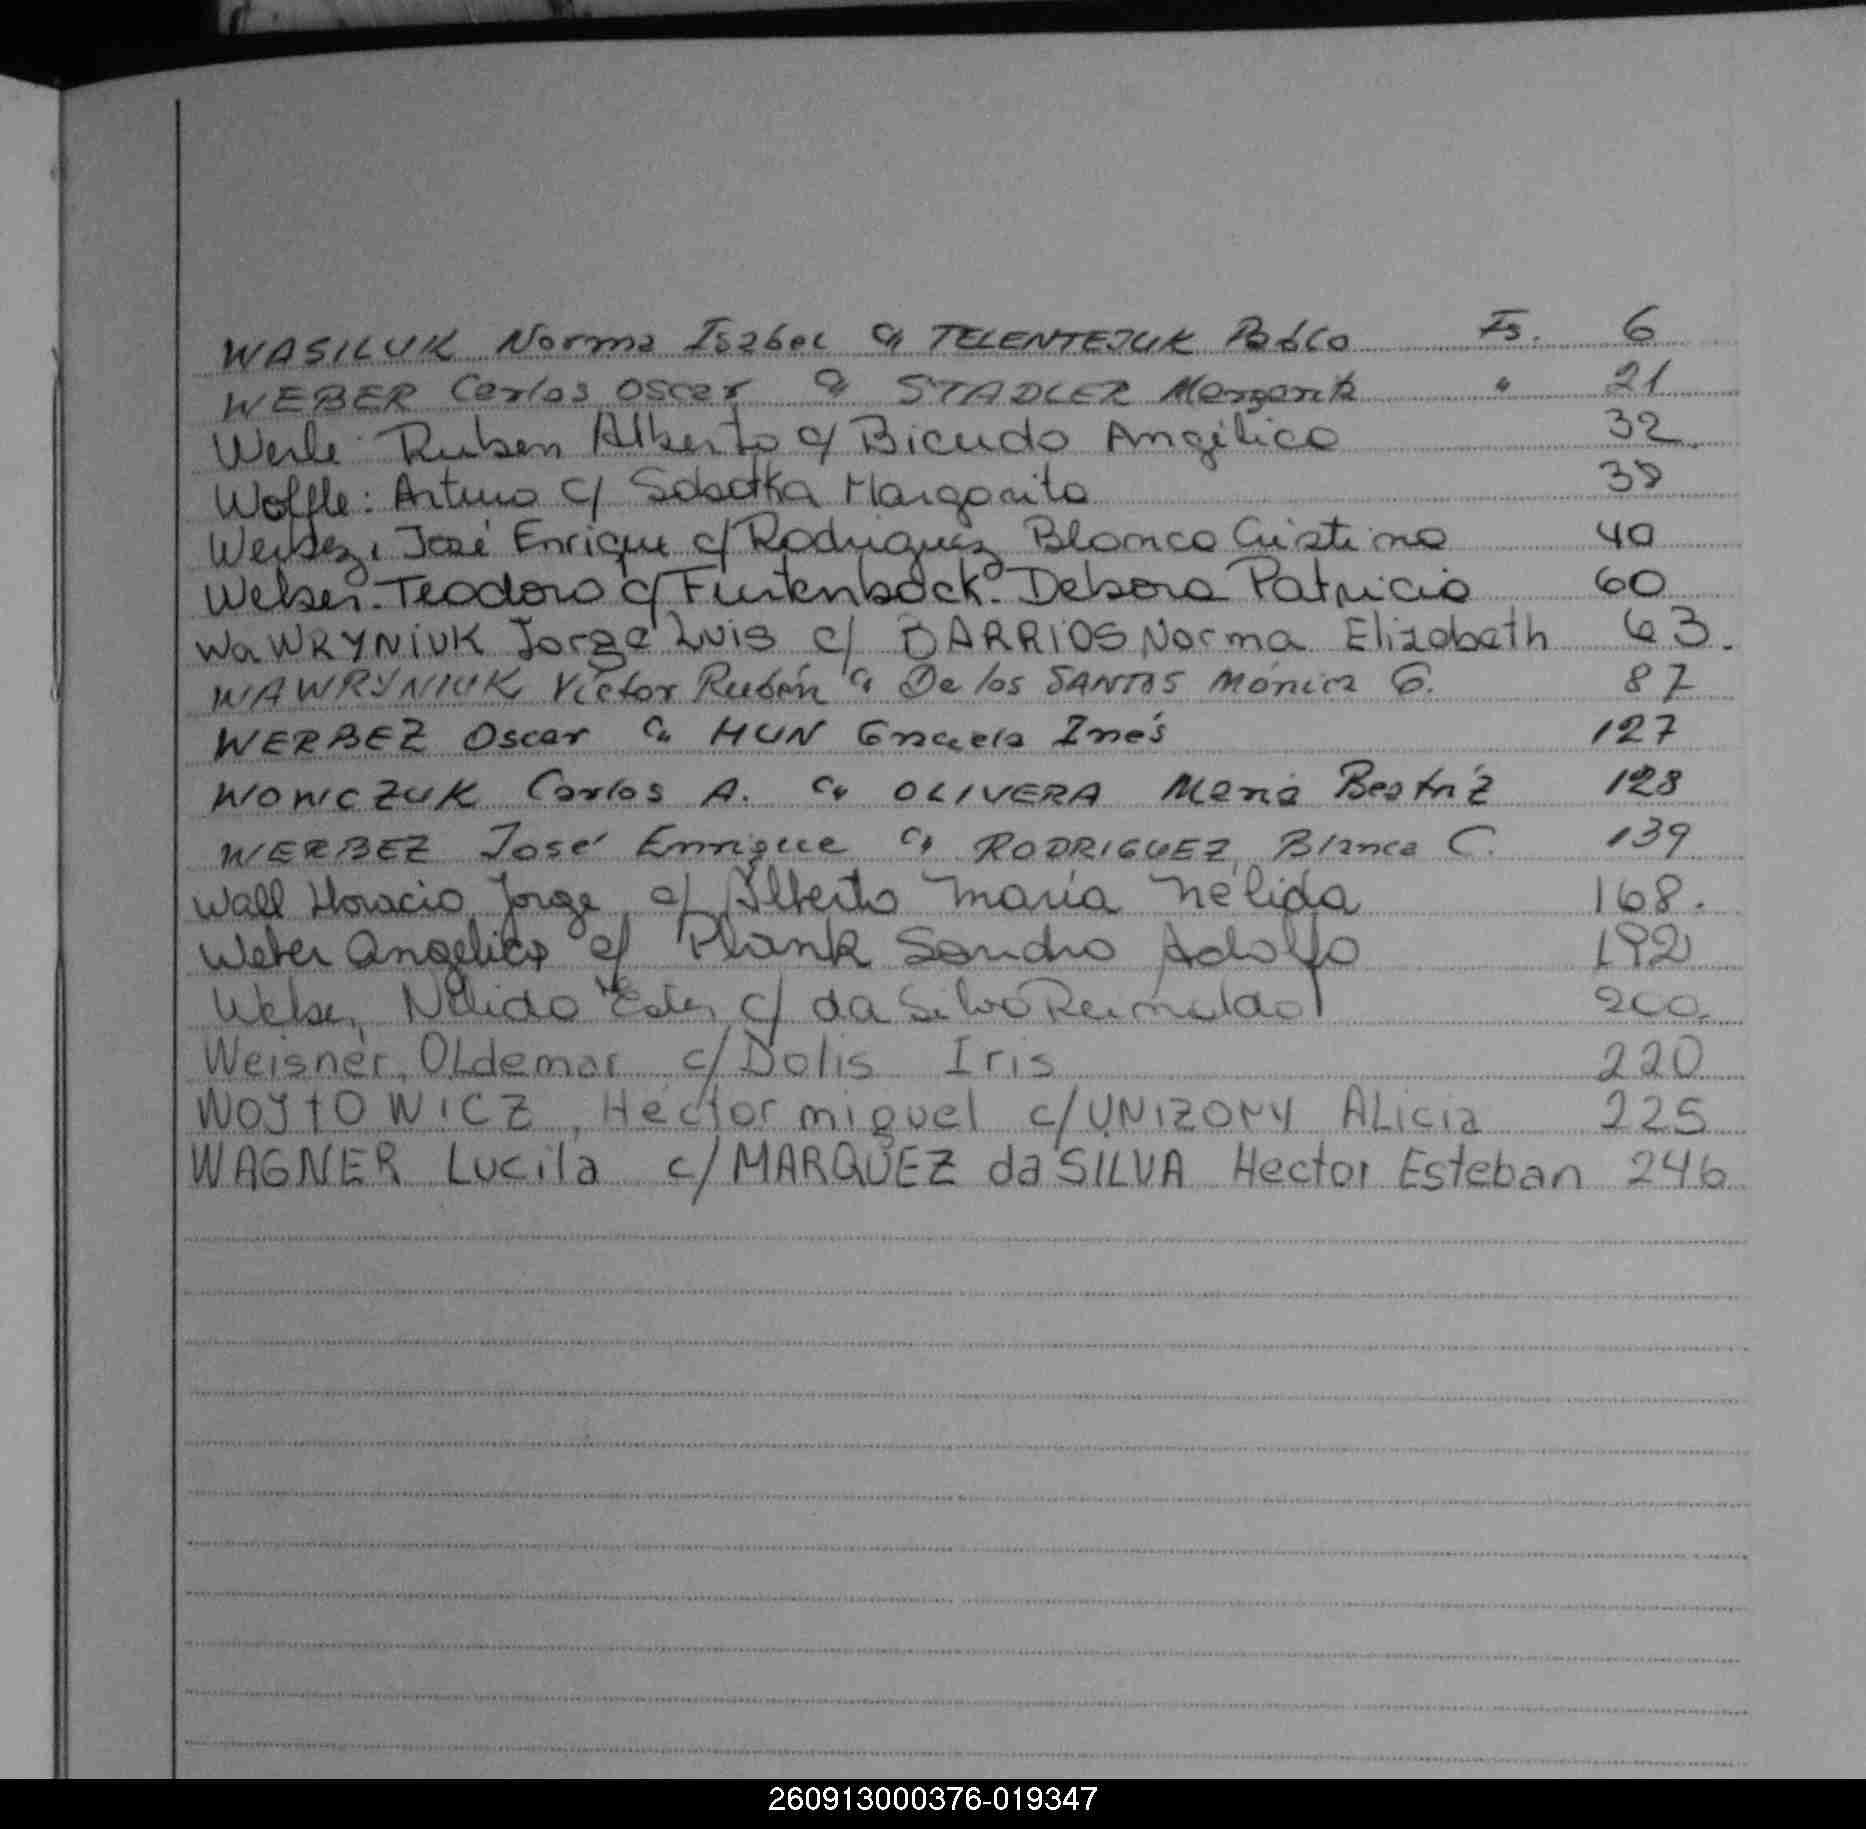 WASILUK Norma Isabel c/ TELENTEJUK Pablo Fs. 6
WEBER Carlos Oscar c/ STADLER Margarita " 21
Werle: Ruben Alberto c/ Bicudo Angélica 32
Wolfle: Arturo c/ Sobotka Margarita 38
Werbez, José Enrique c/ Rodriguez Blanca Cristina 40
Weber. Teodoro c/ Furtenbach. Debora Patricia 60
WaWRYNiUK Jorge Luis c/ BARRiOS Norma Elizabeth 63.
WAWRYNIUK Víctor Rubén c/ De los SANTOS Mónica G. 87
WERBEZ Oscar c/ HUN Graciela Inés 127
WONICZUK Carlos A. c/ OLIVERA María Beatríz 128
WERBEZ José Enrique c/ RODRIGUEZ Blanca C. 139
Wall Horacio Jorge c/ Alberto María Nélida 168.
Weber Angelica c/ Plank Sandro Adolfo 192
Weber, Nélida Ester c/ da Silva Reinaldo 200.
Weisner, OLdemar c/ Dolis Iris 220
WOJtOWICZ, Héctor miguel c/ UNIZONY ALicia 225
WAGNER Lucila c/ MARQUEZ da SILVA Hector Esteban 246
260913000376-019347